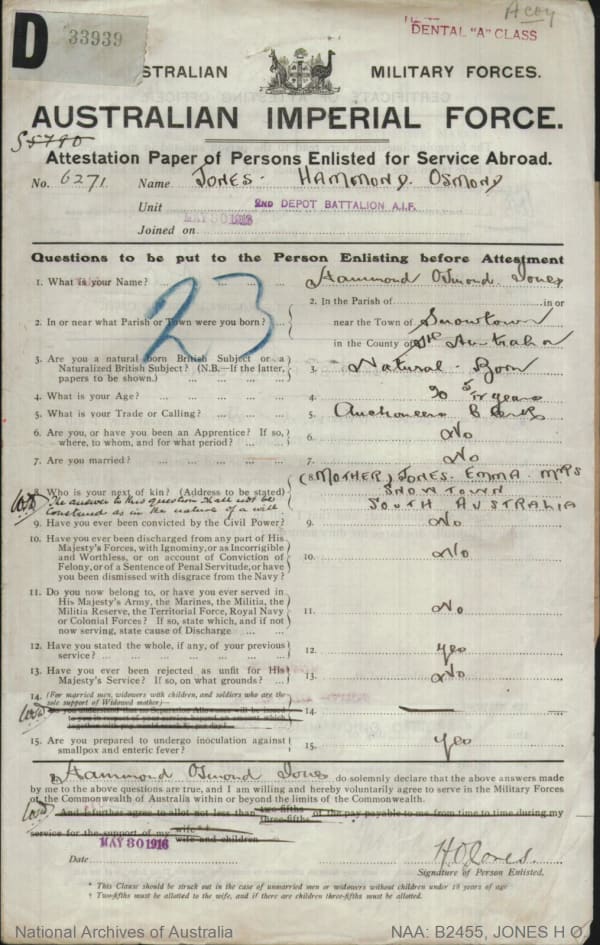 A coy
D 33939
DENTAL "A" CLASS
STRALIAN MILITARY FORCES.
AUSTRALIAN IMPERIAL FORCE.
Attestation Paper of Persons Enlisted for Service Abroad.
No. 6271 Name JONES. HAMMOND. OSMOND
Unit 2ND DEPOT BATTALION A.I.F.
MAY 30 1916
Joined on
Questions to be put to the Person Enlisting before Attestment
1. What is your Name? Hammond Osmond Jones
2. In or near what Parish or Town were you born? 2. In the Parish of in or
near the Town of Snowtown
in the County of Sth Australia
23
3. Are you a natural born British Subject or a
Naturalized British Subject? (N.B.—If the latter, 3. Natural-Born
papers to be shown.)
4. What is your Age? 4. 20 5/12 years
5. What is your Trade or Calling? 5. Auctioneers Clerk
6. Are you, or have you been an Apprentice? If so,
where, to whom, and for what period? 6. No
7. Are you married? 7. No
8. Who is your next of kin? (Address to be stated) (MOTHER) JONES. EMMA. MRS
SNOWTOWN
SOUTH AUSTRALIA
The answer to this question shall not be
construed as in the nature of a will
9. Have you ever been convicted by the Civil Power? 9. No
10. Have you ever been discharged from any part of His
Majesty's Forces, with Ignominy, or as Incorrigible
and Worthless, or on account of Conviction of 10. No
Felony, or of a Sentence of Penal Servitude, or have
you been dismissed with disgrace from the Navy?
11. Do you now belong to, or have you ever served in
His Majesty's Army, the Marines, the Militia, the
Militia Reserve, the Territorial Force, Royal Navy 11. No
or Colonial Forces? If so, state which, and if not
now serving, state cause of Discharge
12. Have you stated the whole, if any, of your previous
service? 12. yes
13. Have you ever been rejected as unfit for His
Majesty's Service? If so, on what grounds? 13. No
14. (For married men, widowers with children, and soldiers who are the
sole support of Widowed mother)—
14.
15. Are you prepared to undergo inoculation against
smallpox and enteric fever? 15. yes
I Hammond Osmond Jones do solemnly declare that the above answers made
by me to the above questions are true, and I am willing and hereby voluntarily agree to serve in the Military Forces
of the Commonwealth of Australia within or beyond the limits of the Commonwealth.
And I further agree to allot not less than two-fifths three-fifths of the pay payable to me from time to time during my
service for the support of my wife wife and children
MAY 30 1916
Date H O Jones.
Signature of Person Enlisted.
* This Clause should be struck out in the case of unmarried men or widowers without children under 18 years of age
† Two-fifths must be allotted to the wife, and if there are children three-fifths must be allotted.
National Archives of Australia NAA: B2455, JONES H O